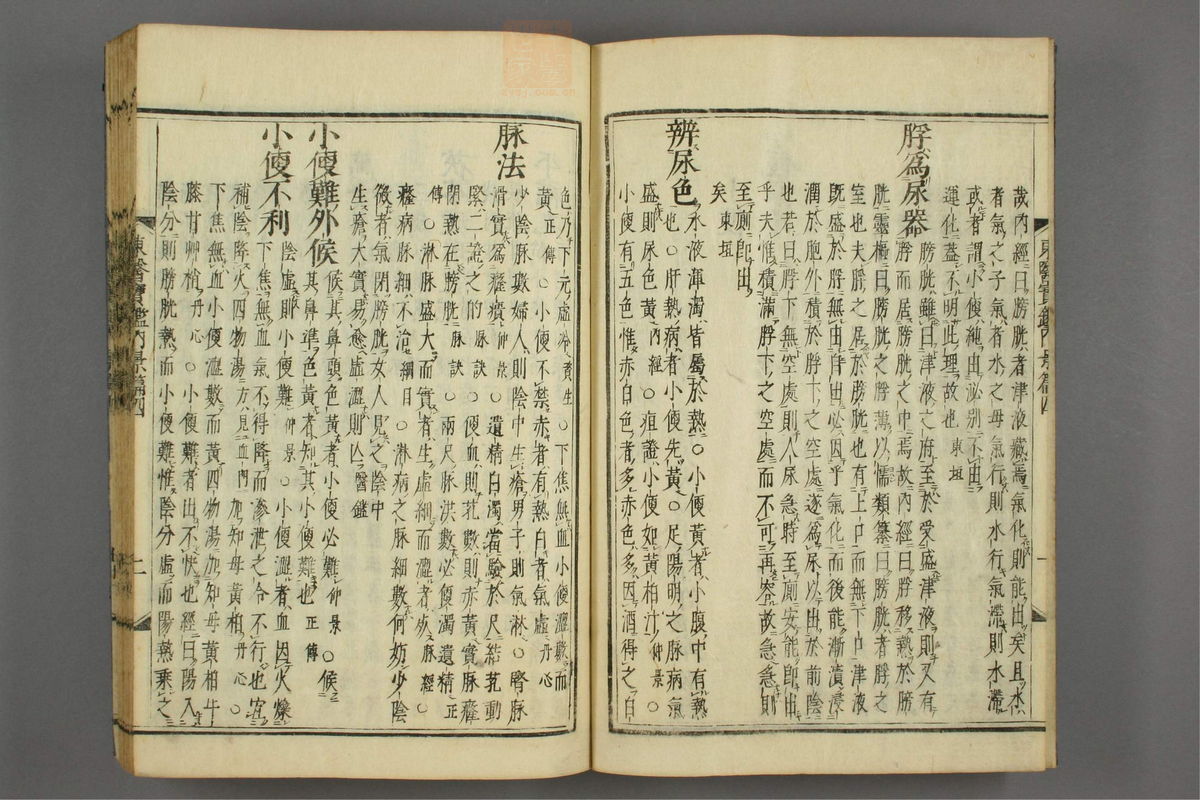 哉內經曰膀胱者津液藏焉氣化則能出矣且水
者氣之子氣者水之母氣行則水行氣滯則水滯
或者謂小便純出泌別不由
運化蓋不明此理故也 東垣
脬爲尿器
膀胱雖曰津液之府至於受盛津液則又有
脬而居膀胱之中焉故內經曰脬移熱於膀
胱靈樞曰膀胱之脬薄以懦類纂曰膀胱者脬之
室也夫脬之居於膀胱也有上口而無下口津液
旣盛於脬無由自出必因乎氣化而後能漸漬浸
潤於胞外積於脬下之空處遂爲尿以出於前陰
也若曰脬下無空處則人尿急時至厠安能卽出
乎夫惟積滿脬下之空處而不可再容故急急則
至厠卽出
矣 東垣
辨尿色
水液渾濁皆屬於熱○小便黃者小腹中有熱
也○肝熱病者小便先黃○足陽明之脉病氣
盛則尿色黃 內經○疸證小便如黃柏汁 仲景○
小便有五色惟赤白色者多赤色多因酒得之白
色乃下元虛冷 資生○下焦無血小便澁數而
黃 正傳○小便不禁赤者有熱白者氣虛 丹心
脉法
少陰脉數婦人則陰中生瘡男子則氣淋○腎脉
滑實爲癃㿗 仲景○遺精白濁當驗於尺結芤動
緊二證之的 脉訣○便血則芤數則赤黃實脉癃
閉熱在膀胱 脉訣○兩尺脉洪數必便濁遺精 正
傳○淋脉盛大而實者生虛細而澁者死 脉經○
癃病脉細不治 綱目○淋病之脉細數何妨少陰
微者氣閉膀胱女人見之陰中
生瘡大實易愈虛澁則亡 醫鑑
小便難外候
候其鼻頭色黃者小便必難 仲景○候
其鼻準色黃者知其小便難也 正傳
小便不利
陰虛則小便難 仲景○小便澁者血因火燥
下焦無血氣不得降而滲泄之令不行也宜
補陰降火四物湯 方見血門 加知母黃栢 丹心○
下焦無血小便澁數而黃四物湯加知母黃栢牛
膝甘艸梢 丹心○小便難者出不快也經曰陽入
陰分則膀胱熱而小便難惟陰分虛而陽熱乘之
東醫寶鑑內景篇四
二